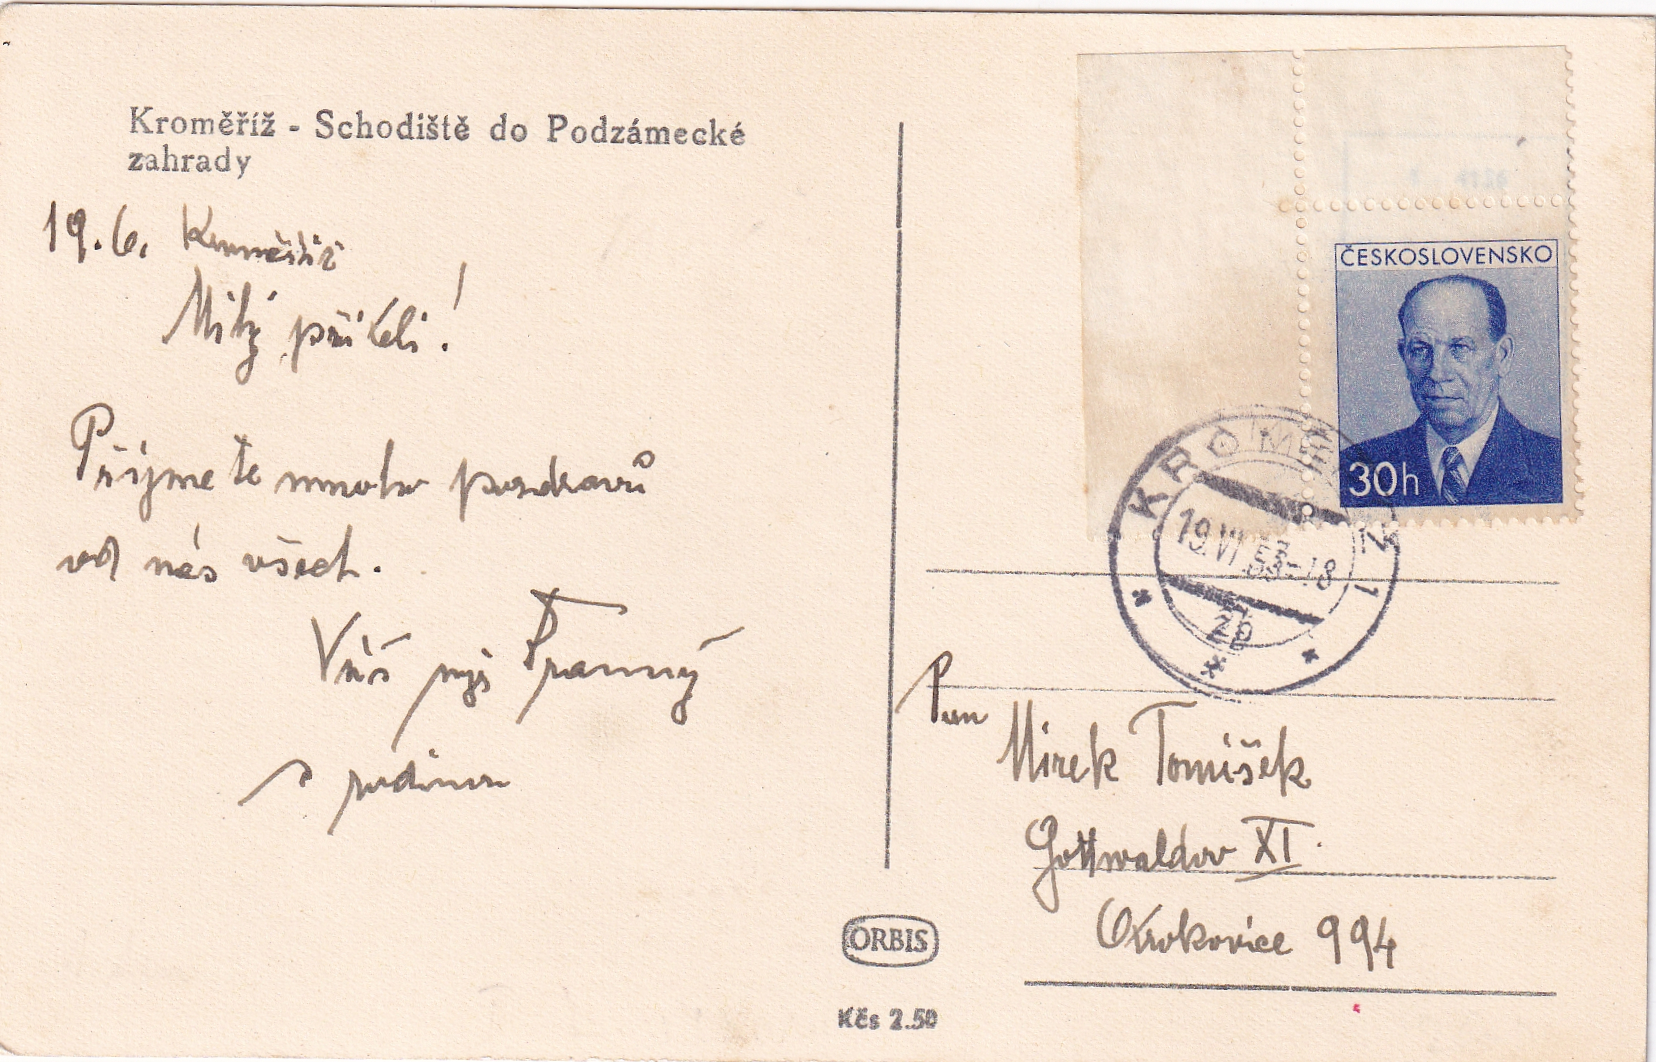 Kroměříž - Schodiště do Podzámecké
zahrady
19.6. Kroměříž
Milý příteli!
Přijměte mnoho pozdravů
od nás všech.
Váš
s rodinou
ČESKOSLOVENSKO
30h
KROMĚŘÍŽ 1
19.VI.53-18
2b
Pan
Mirek Tomíšek
Gottwaldov XI.
Otrokovice 994
ORBIS
Kčs 2.50